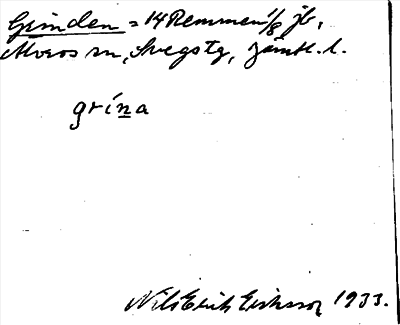 Grinden = 14 Remmen 1/8 jb,
Älvros sn, Svegs tg, Jämtl. l.
grína
Nils Erik Eriksson 1933.